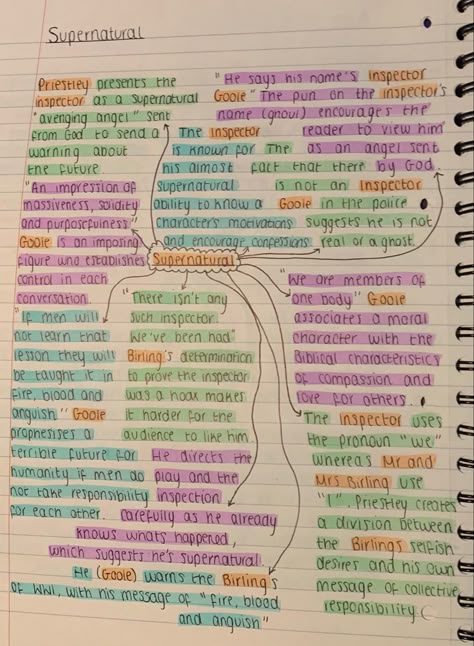 Supernatural
Priestley presents the
inspector as a supernatural
"avenging angel" sent
from God to send a
warning about
the future.
"He says his name's Inspector
Goole" The pun on the inspector's
name (ghoul) encourages the
reader to view him
as an angel sent
by God.
The Inspector
is known for
his almost
supernatural
ability to know a
character's motivations
and encourage confessions.
The
fact that there
is not an Inspector
Goole in the police
suggests he is not
real or a ghost.
"An impression of
massiveness, solidity
and purposefulness"
Goole is an imposing
figure who establishes
control in each
conversation.
Supernatural
"If men will
not learn that
lesson they will
be taught it in
fire, blood and
anguish" Goole
prophesises a
terrible future for
humanity if men do
not take responsibility
for each other.
"There isn't any
such inspector.
We've been had"
Birling's determination
to prove the inspector
was a hoax makes
it harder for the
audience to like him.
He directs the
play and the
inspection
carefully as he already
knows whats happened,
which suggests he's supernatural.
"We are members of
one body" Goole
associates a moral
character with the
Biblical characteristics
of compassion and
love for others.
The Inspector uses
the pronoun "we"
whereas Mr and
Mrs Birling use
"I". Priestley creates
a division between
the Birling's selfish
desires and his own
message of collective
responsibility.
He (Goole) warns the Birling's
of WWI, with his message of "fire, blood
and anguish"